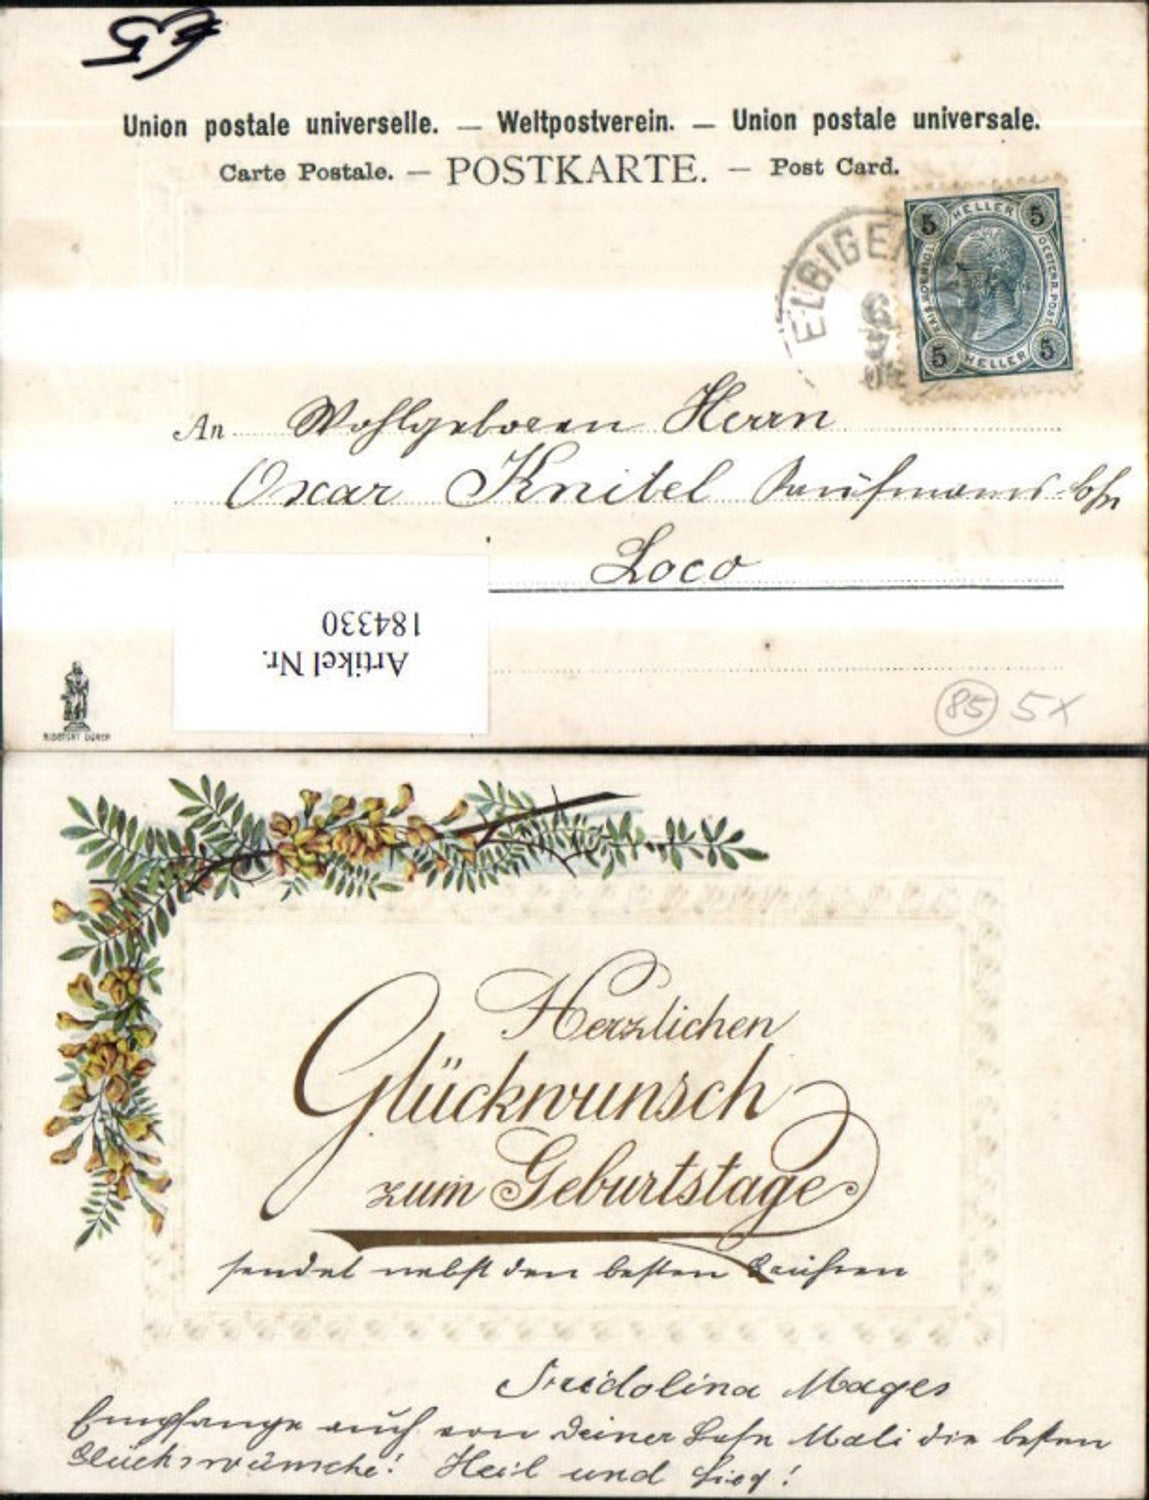 Union postale universelle. — Weltpostverein. — Union postale universale.
Carte Postale. — POSTKARTE. — Post Card.
5 HELLER 5
KAIS. KOENIGL. OESTERR. POST.
5 HELLER 5
ELBIGEN
An Wohlgeboren Herrn
Oscar Knitel Kaufmanns
Loco
Artikel Nr.
184330
ALBRECHT DÜRER
85 5x
Herzlichen
Glückwunsch
zum Geburtstage
sendet nebst den besten
Fridolina Mages
Empfange auch von Deiner Mali die besten
Glückwünsche! Heil und Sieg!